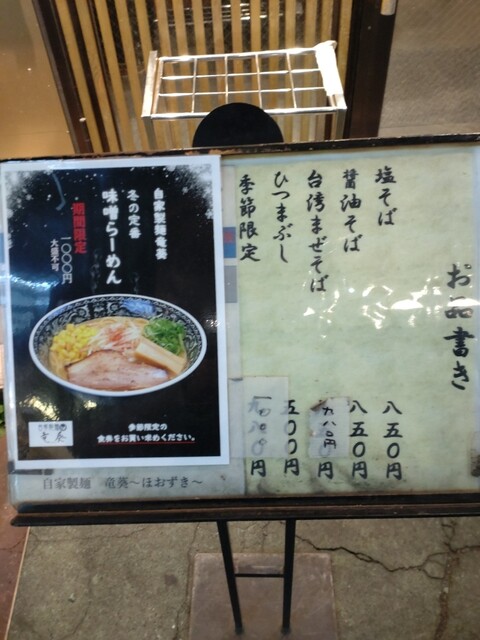 お品書き
塩そば 八五〇円
醤油そば 八五〇円
台湾まぜそば 九八〇円
ひつまぶし 五〇〇円
季節限定 一〇〇〇円
自家製麺竜葵
冬の定番
味噌らーめん
期間限定
一〇〇〇円
大盛不可
季節限定の
食券をお買い求めください。
自家製麺
竜葵
自家製麺 竜葵〜ほおずき〜